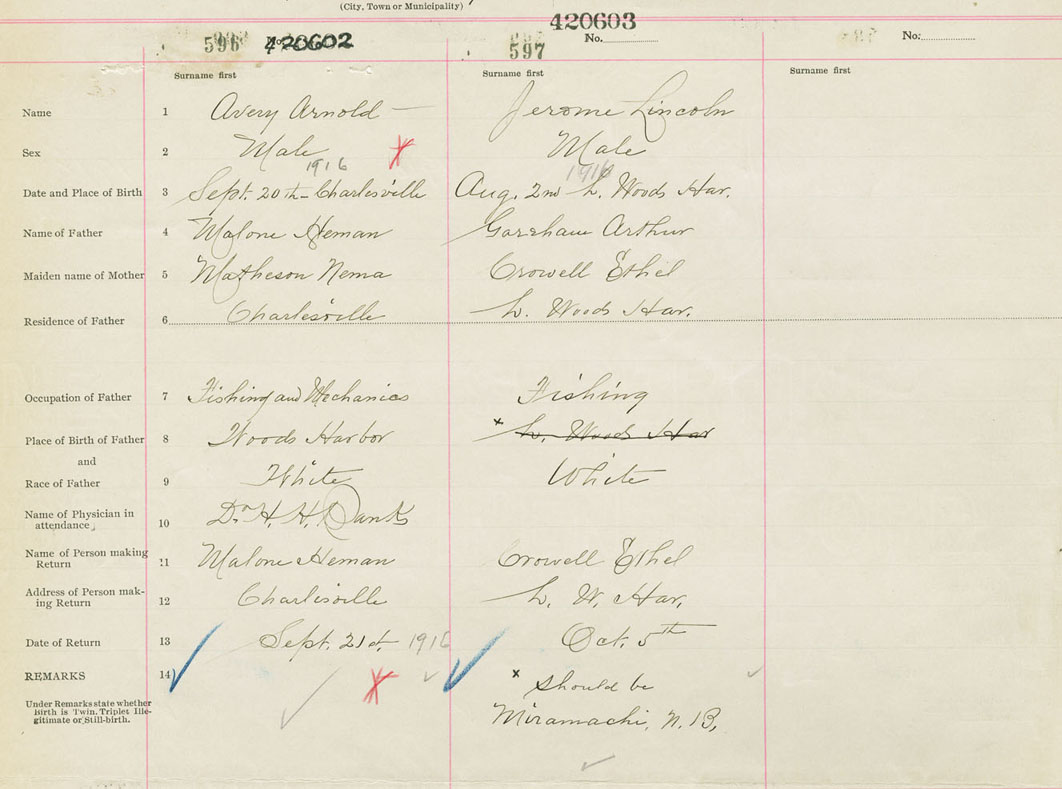 (City, Town or Municipality)
596 420602
420603
597 No.
No.
Surname first Surname first Surname first
Name 1 Avery Arnold Jerome Lincoln
Sex 2 Male Male
1916 1916
Date and Place of Birth 3 Sept. 20th - Charlesville Aug. 2nd L. Woods Har.
Name of Father 4 Malone Heman Arthur
Maiden name of Mother 5 Matheson Nema Crowell Ethel
Residence of Father 6 Charlesville L. Woods Har.
Occupation of Father 7 Fishing and Mechanics Fishing
Place of Birth of Father 8 Woods Harbor x L. Woods Har
and
Race of Father 9 White White
Name of Physician in
attendance 10 Dr. H. H. Banks
Name of Person making
Return 11 Malone Heman Crowell Ethel
Address of Person mak-
ing Return 12 Charlesville L. W. Har.
Date of Return 13 Sept. 21st. 1916 Oct. 5th
REMARKS 14 x should be
Under Remarks state whether
Birth is Twin. Triplet Ille-
gitimate or Still-birth.
Miramachi, N. B,